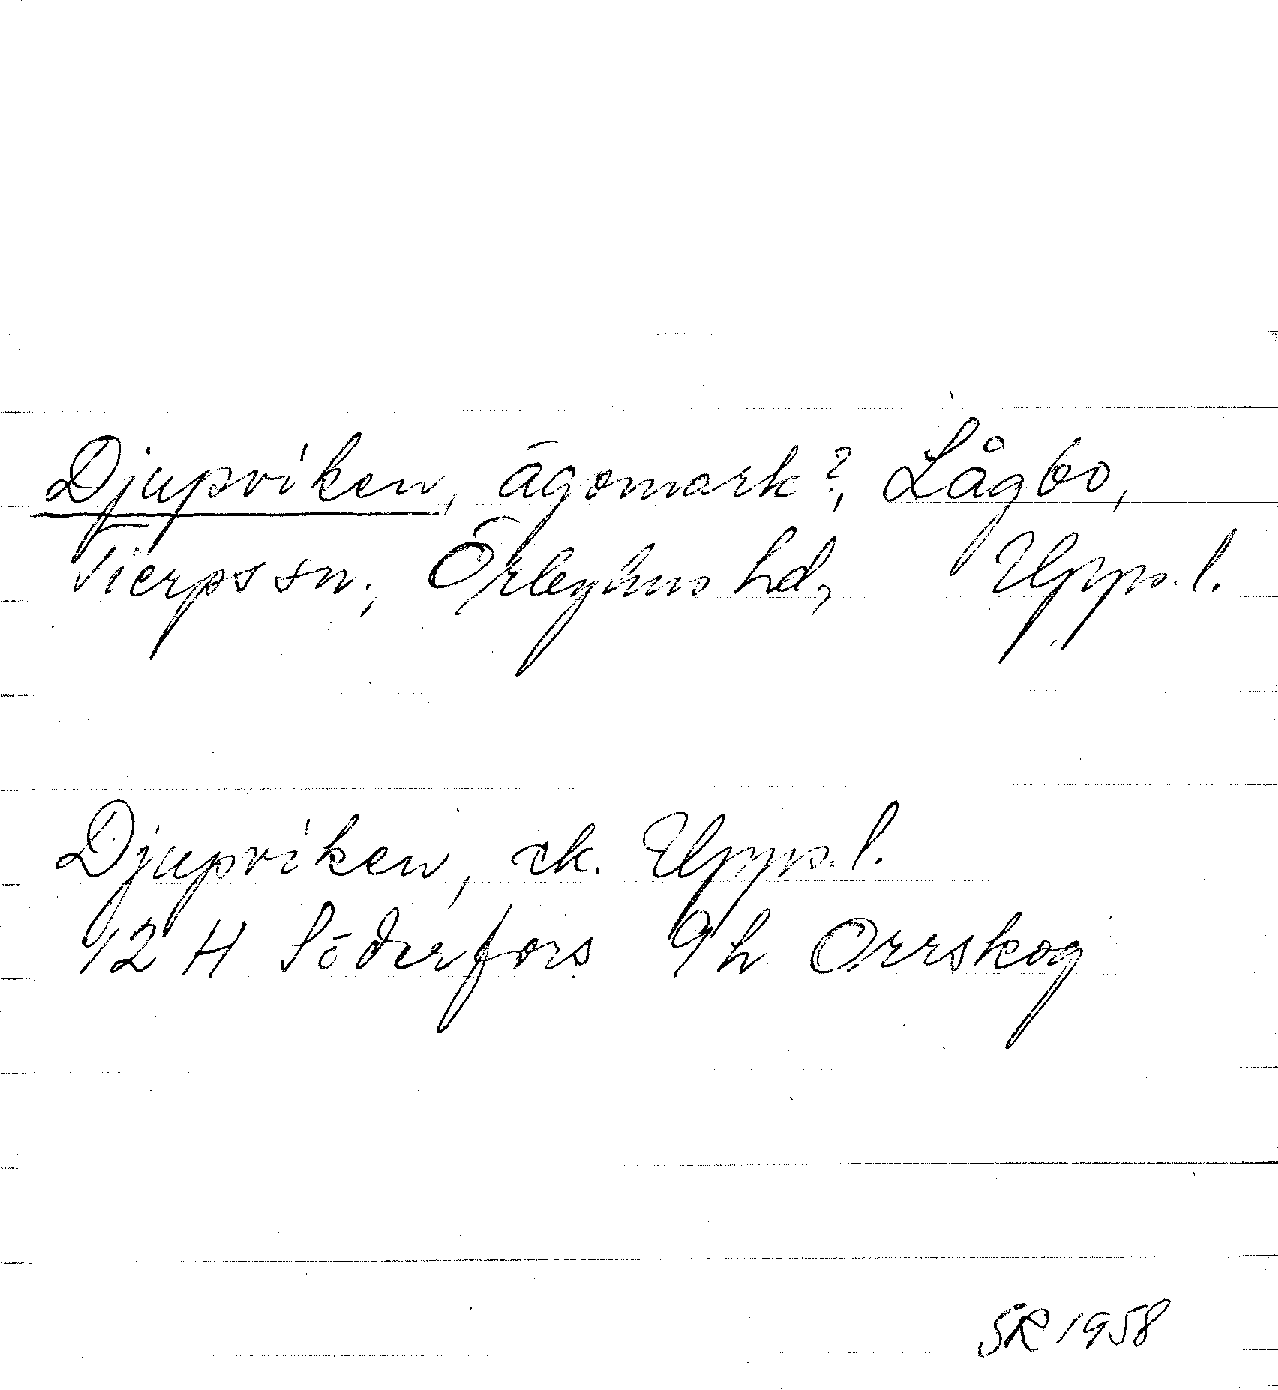 Djupviken, ägomark?, Lågbo,
Tierps sn., Örbyhus hd, Upps. l.
Djupviken, ek. Upps. l.
12 H Söderfors 9h Orrskog
SR 1958